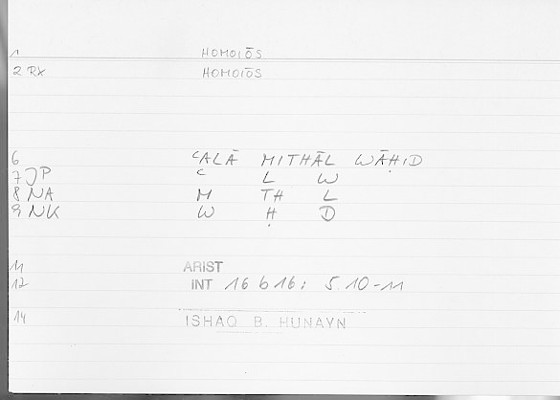 1 HOMOIŌS
2 RX HOMOIŌS
6 ʿALĀ MITHĀL WĀḤID
7 JP ʿ L W
8 NA M TH L
9 NK W Ḥ D
11 ARIST
12 INT 16 b 16; 5.10-11
14 ISHAQ B. HUNAYN